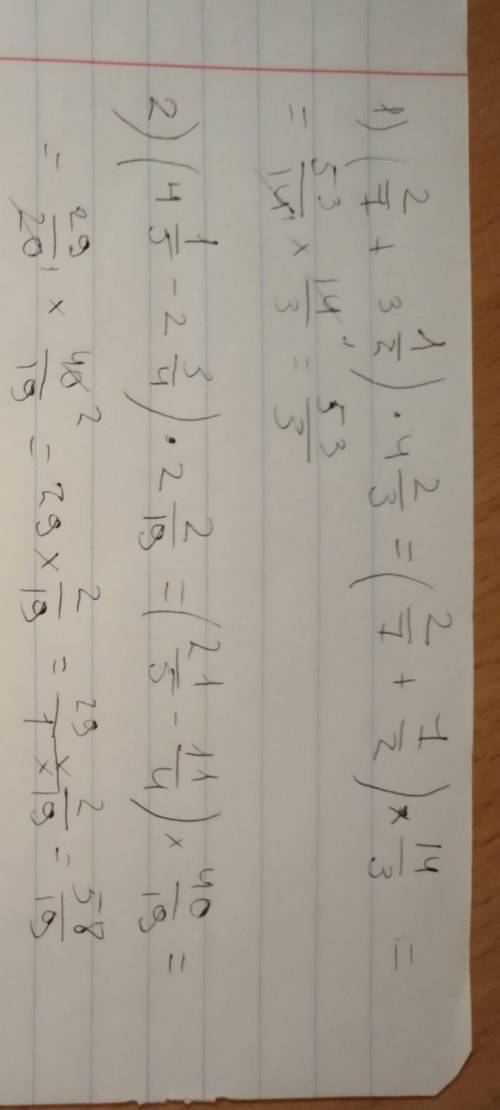 1) (2/7 + 3 1/2) · 4 2/3 = (2/7 + 7/2) × 14/3 =
= 53/14 ¹ × 14 ¹/3 = 53/3
2) (4 1/5 - 2 3/4) · 2 2/19 = (21/5 - 11/4) × 40/19 =
= 29/20 ¹ × 40 ²/19 = 29 × 2/19 = 29/1 × 2/19 = 58/19